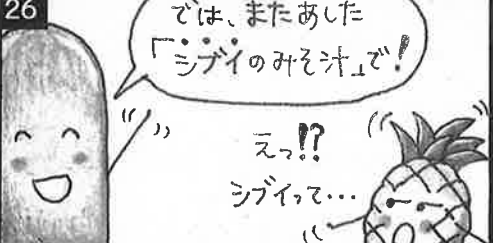 26
では、またあした
「シブイのみそ汁」で!
えっ!?
シブイって…